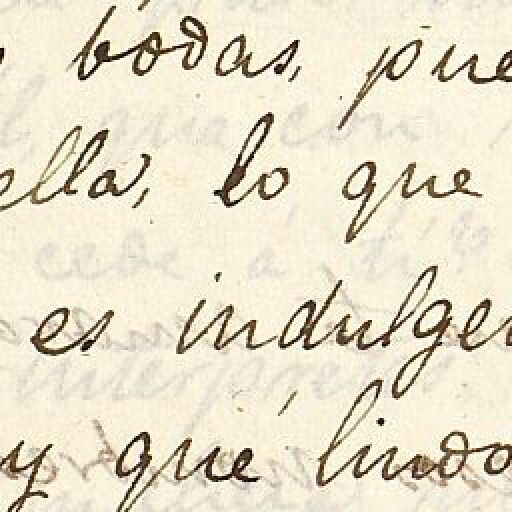 bodas, pue
ella, lo que
es indulgen
y qué lindo